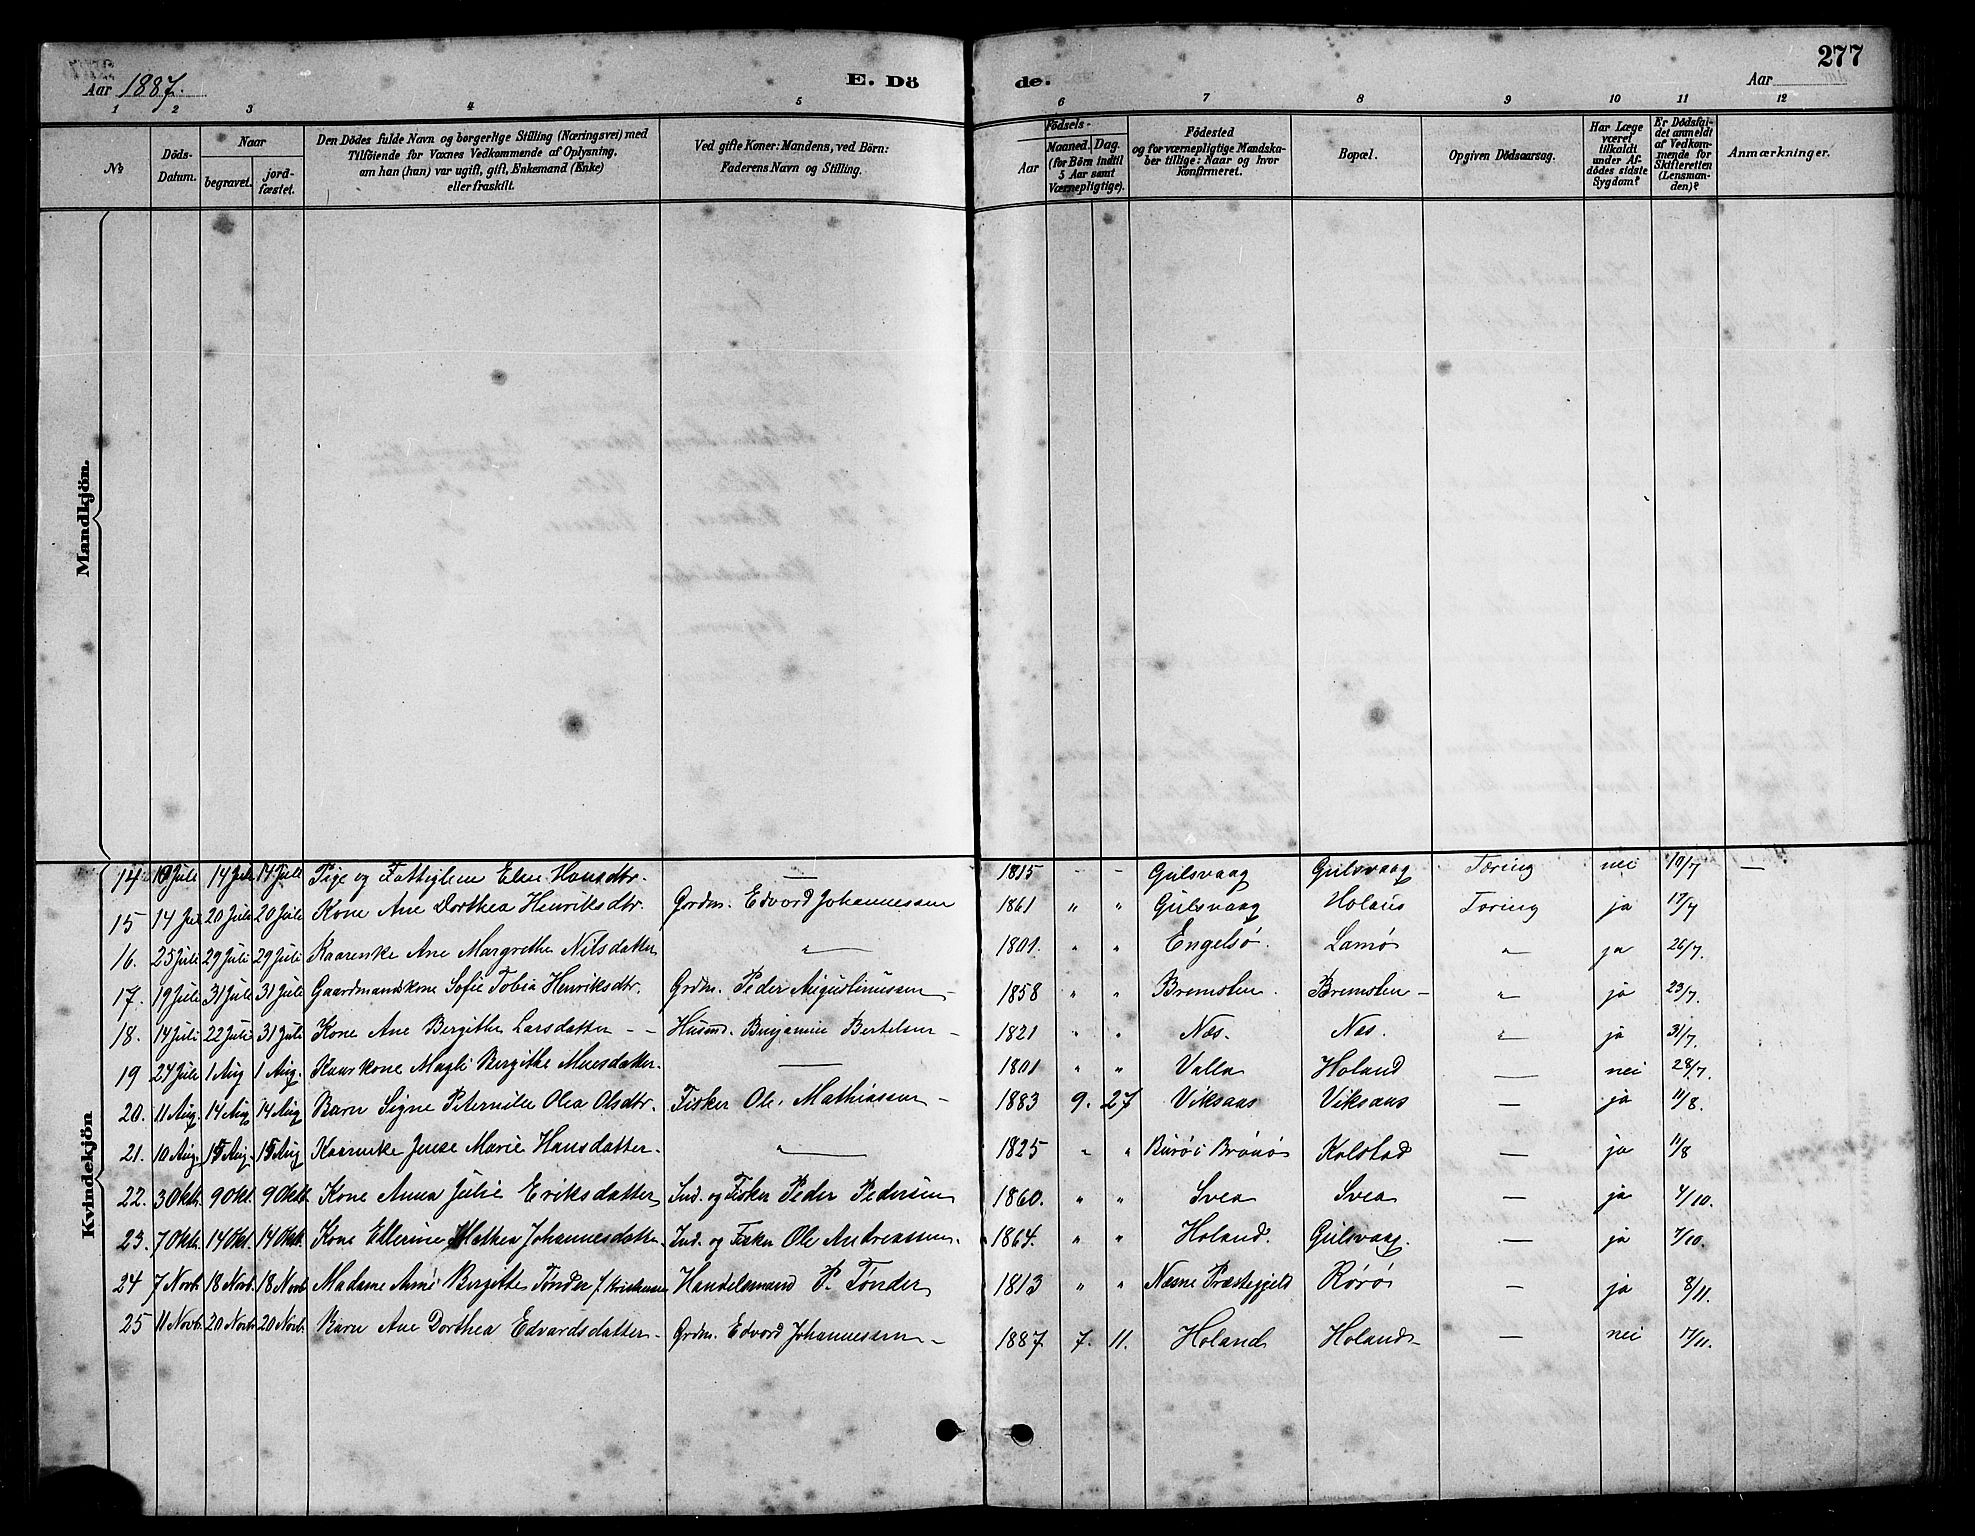 277
Aar 1887.
E. Dö
de.
Aar
1 2 3 4 5 6 7 8 9 10 11 12
№
Döds-Datum.
Naar
begravet.
jord-fæstet.
Den Dödes fulde Navn og borgerlige Stilling (Næringsvei) med
Tilföiende for Voxnes Vedkommende af Oplysning,
om han (hun) var ugift, gift, Enkemand (Enke)
eller fraskilt.
Ved gifte Koner: Mandens, ved Börn:
Faderens Navn og Stilling.
Födsels-
Aar
Maaned. Dag.
(for Börn indtil
5 Aar samt
Værnepligtige).
Födested
og for værnepligtige Mandska-
ber tillige: Naar og hvor
konfirmeret.
Bopæl.
Opgiven Dödsaarsag.
Har Læge
været
tilkaldt
under Af-
dödes sidste
Sygdom?
Er Dödsfal-
det anmeldt
af Vedkom-
mende for
Skifteretten
(Lensman-
den)?
Anmærkninger.
Mandkjön.
Kvindekjön
14 Juli 14 Juli 14 Juli Pige og Fattiglem Else Hansdtr. — 1815 - - Gulsvaag Gulsvaag Tæring nei 19/7 —
15 14 Juli 20 Juli 20 Juli Kone Ane Dorthea Henriksdtr. Grdm. Edvard Johannessen 1861 " " Gulsvaag Tæring ja
16. 25 Juli 29 Juli 29 Juli Kaarenke Ane Margrethe Nilsdatter " 1801. " " Engelsø. Lamø " ja 26/7.
17. 19 Juli 31 Juli 31 Juli Gaardmandskone Sofie Tobia Henriksdtr. Grdm. Peder Augustinussen - 1858 " " Bremsten. Bremsten - " ja 23/7.
18. 14 Juli 22 Juli 31 Juli Kone Ane Bergithe Larsdatter - - Husmd. Benjamin Bertelsen - 1821 " " Næs. Næs. " ja 31/7.
19 24 Juli 1 Aug 1 Aug. Magli Bergithe — 1801 " " Valla Holand — nei 28/7.
20. 11 Aug. 14 Aug 14 Aug Barn Signe Peternille Olea Olsdtr. Fisker Ole Mathiassen - 1883 9. 27 Viksaas Viksaas — ja 11/8.
21. 10 Aug. 15 Aug. 15 Aug Kaarenke Jense Marie Hansdatter. " 1825 " " Burø i Brønø Kolstad — ja 11/8
22. 3 Okt. 9 Okt. 9 Okt. Kone Anna Julie Eriksdatter Ind. og Fisker Peder Pedersen 1860. " " Svea Svea — ja 4/10.
23. 7 Okt. 14 Okt. 14 Okt. Kone Ellerine Mathea Johannesdatter. Ind. og Fisker Ole Andreassen. 1864. " " Holand. Gulsvaag. — ja 7/10.
24 7 Novb. 18 Novb. 18 Novb. Madame Bergitte Tønder f. Handelsmand P. Tønder 1813 " " Næsne Præstegjeld Rørø — ja 8/11.
25 11 Novb. 20 Novb. 20 Novb. Barn Ane Dorthea Edvardsdatter - Grdm. Edvard Johannessen - 1887 7. 11. Holand Holand - — nei 17/11.